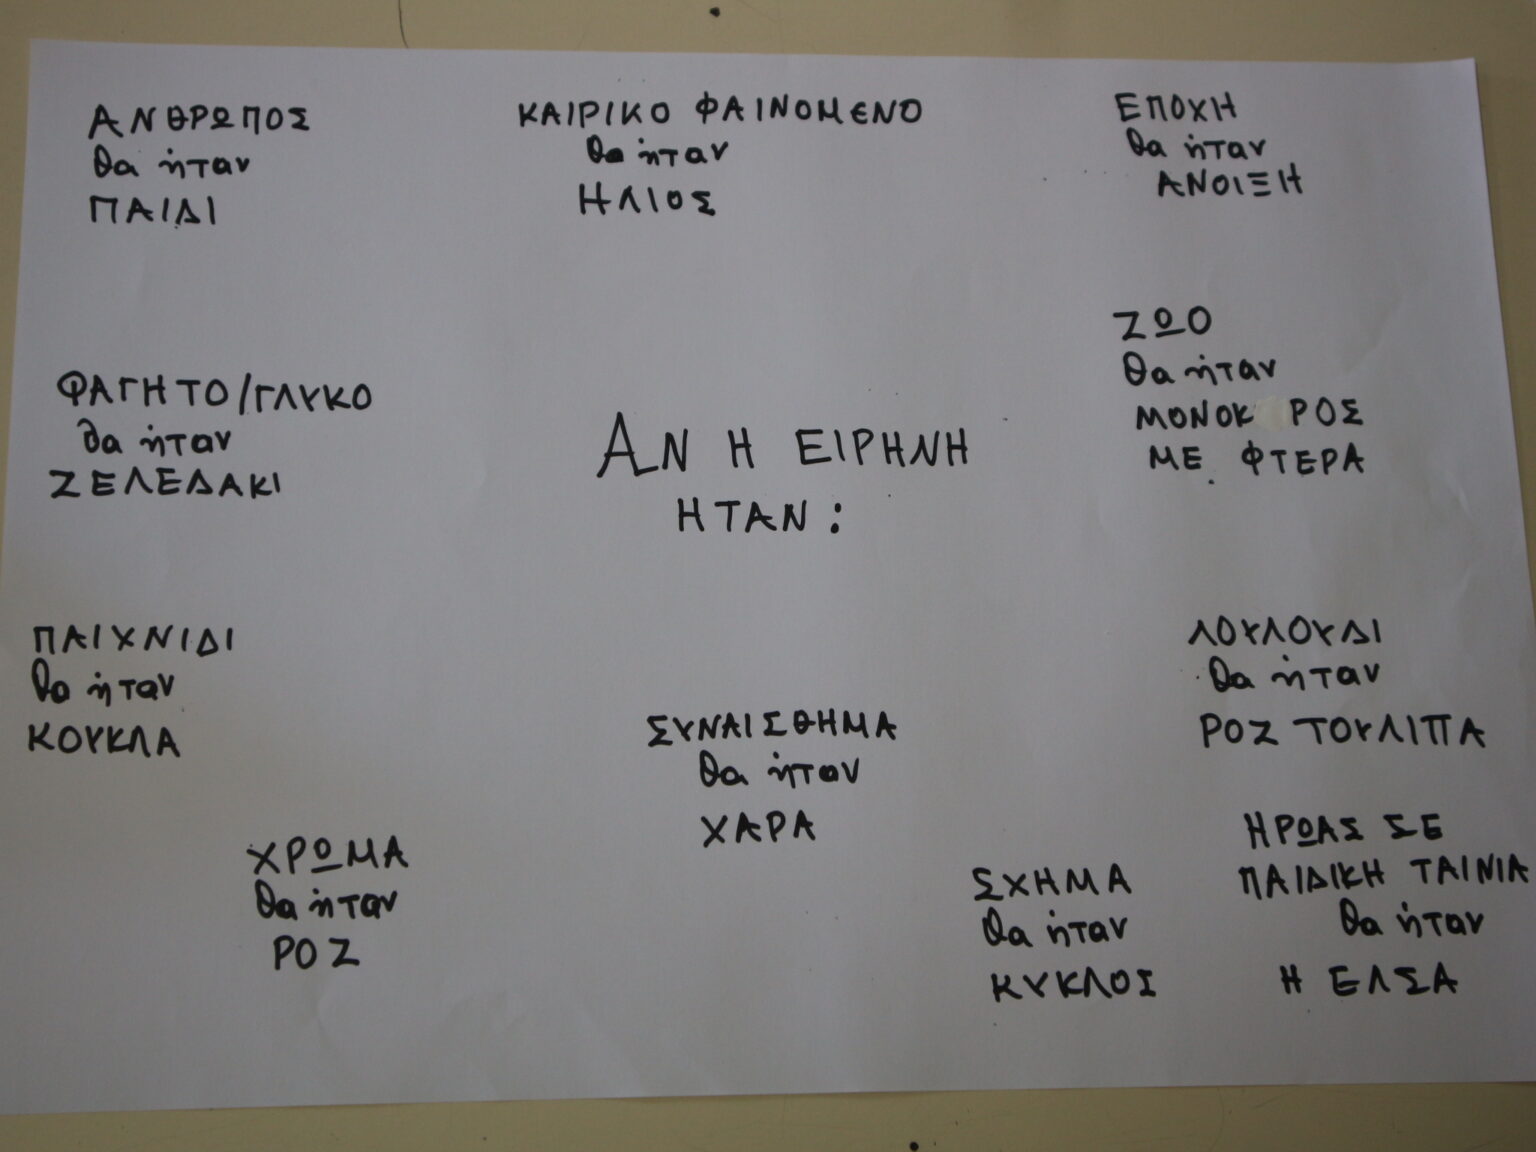 ΑΝΘΡΩΠΟΣ
θα ήταν
ΠΑΙΔΙ
ΚΑΙΡΙΚΟ ΦΑΙΝΟΜΕΝΟ
θα ήταν
ΗΛΙΟΣ
ΕΠΟΧΗ
θα ήταν
ΑΝΟΙΞΗ
ΦΑΓΗΤΟ/ΓΛΥΚΟ
θα ήταν
ΖΕΛΕΔΑΚΙ
ΑΝ Η ΕΙΡΗΝΗ
ΗΤΑΝ:
ΖΩΟ
θα ήταν
ΜΟΝΟΚ ΡΟΣ
ΜΕ ΦΤΕΡΑ
ΠΑΙΧΝΙΔΙ
θα ήταν
ΚΟΥΚΛΑ
ΣΥΝΑΙΣΘΗΜΑ
θα ήταν
ΧΑΡΑ
ΛΟΥΛΟΥΔΙ
θα ήταν
ΡΟΖ ΤΟΥΛΙΠΑ
ΧΡΩΜΑ
θα ήταν
ΡΟΖ
ΣΧΗΜΑ
θα ήταν
ΚΥΚΛΟΣ
ΗΡΩΑΣ ΣΕ
ΠΑΙΔΙΚΗ ΤΑΙΝΙΑ
θα ήταν
Η ΕΛΣΑ